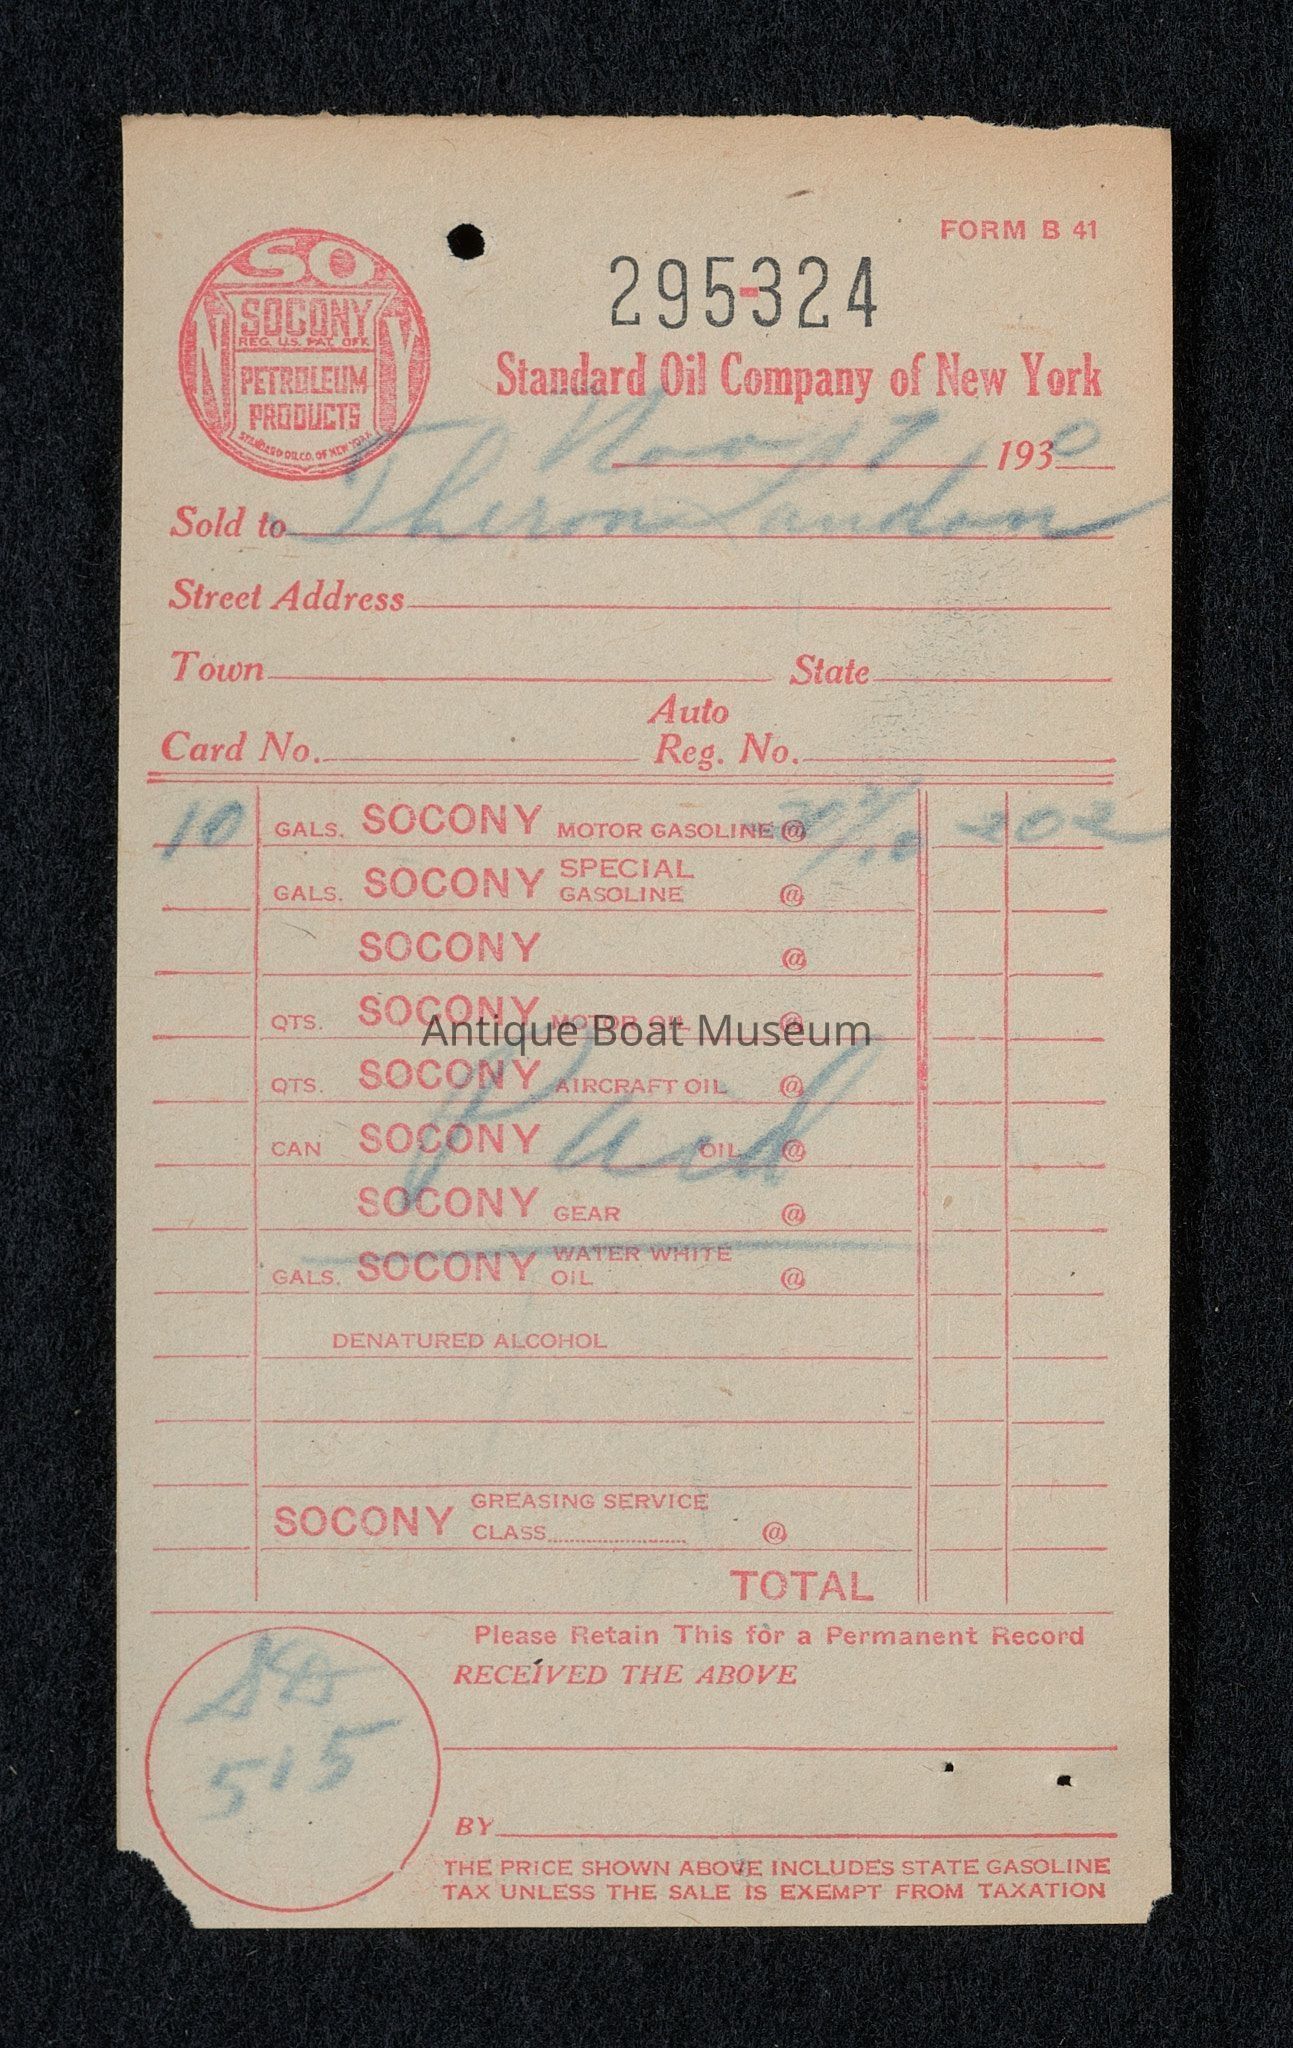 FORM B 41
SO
N Y
SOCONY
REG. U.S. PAT. OFF.
PETROLEUM
PRODUCTS
STANDARD OIL CO. OF NEW YORK
295-324
Standard Oil Company of New York
Nov 17 1930
Sold to Theron Landon
Street Address
Town State
Auto
Card No. Reg. No.
10 GALS. SOCONY MOTOR GASOLINE @ 20 2/10 202
GALS. SOCONY SPECIAL GASOLINE @
SOCONY @
QTS. SOCONY MOTOR OIL @
Antique Boat Museum
QTS. SOCONY AIRCRAFT OIL @
Paid
CAN SOCONY OIL @
SOCONY GEAR @
GALS. SOCONY WATER WHITE OIL @
DENATURED ALCOHOL
SOCONY GREASING SERVICE
CLASS @
TOTAL
Please Retain This for a Permanent Record
RECEIVED THE ABOVE
515
BY
THE PRICE SHOWN ABOVE INCLUDES STATE GASOLINE
TAX UNLESS THE SALE IS EXEMPT FROM TAXATION